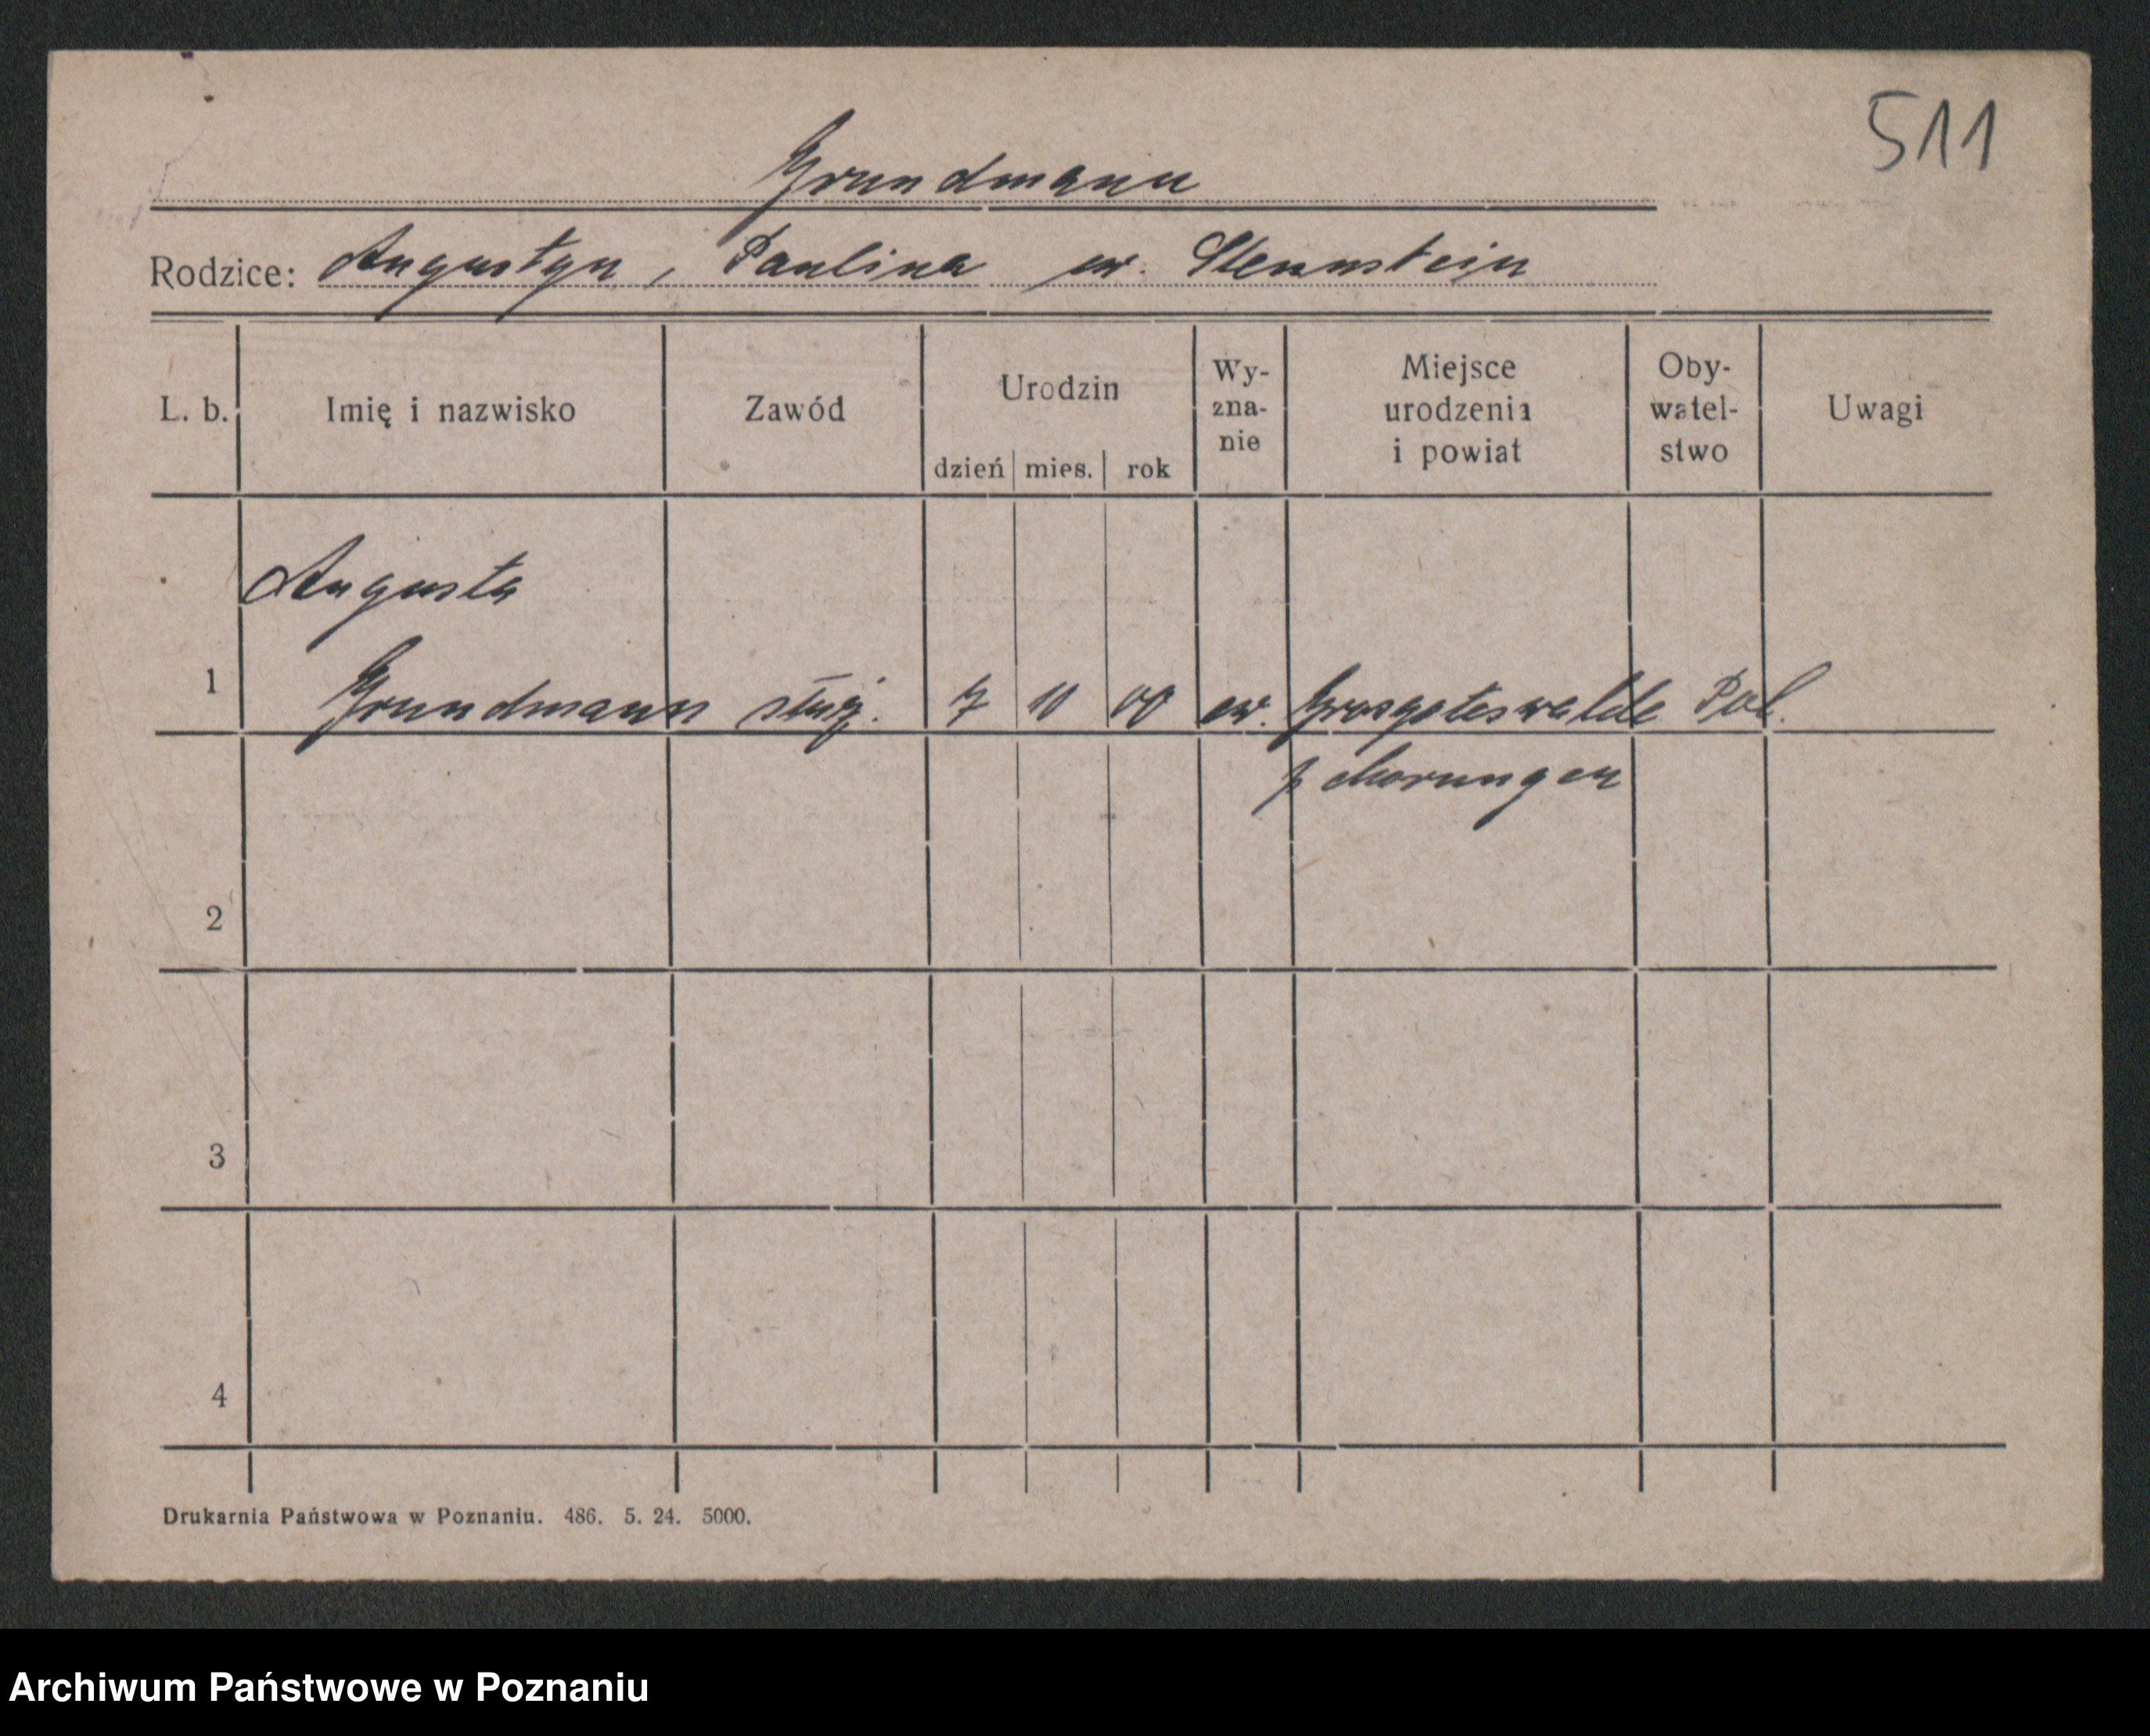 511
Grundmann
Rodzice: Augustyn, Paulina ew. Stennstein
L. b.
Imię i nazwisko
Zawód
Urodzin
dzień mies. rok
Wy-
zna-
nie
Miejsce
urodzenia
i powiat
Oby-
watel-
stwo
Uwagi
Augusta
1 Grundmann służ. 7 10 00 ew. Grosgoteswalde Pol.
p Morungen
2
3
4
Drukarnia Państwowa w Poznaniu. 486. 5. 24. 5000.
Archiwum Państwowe w Poznaniu